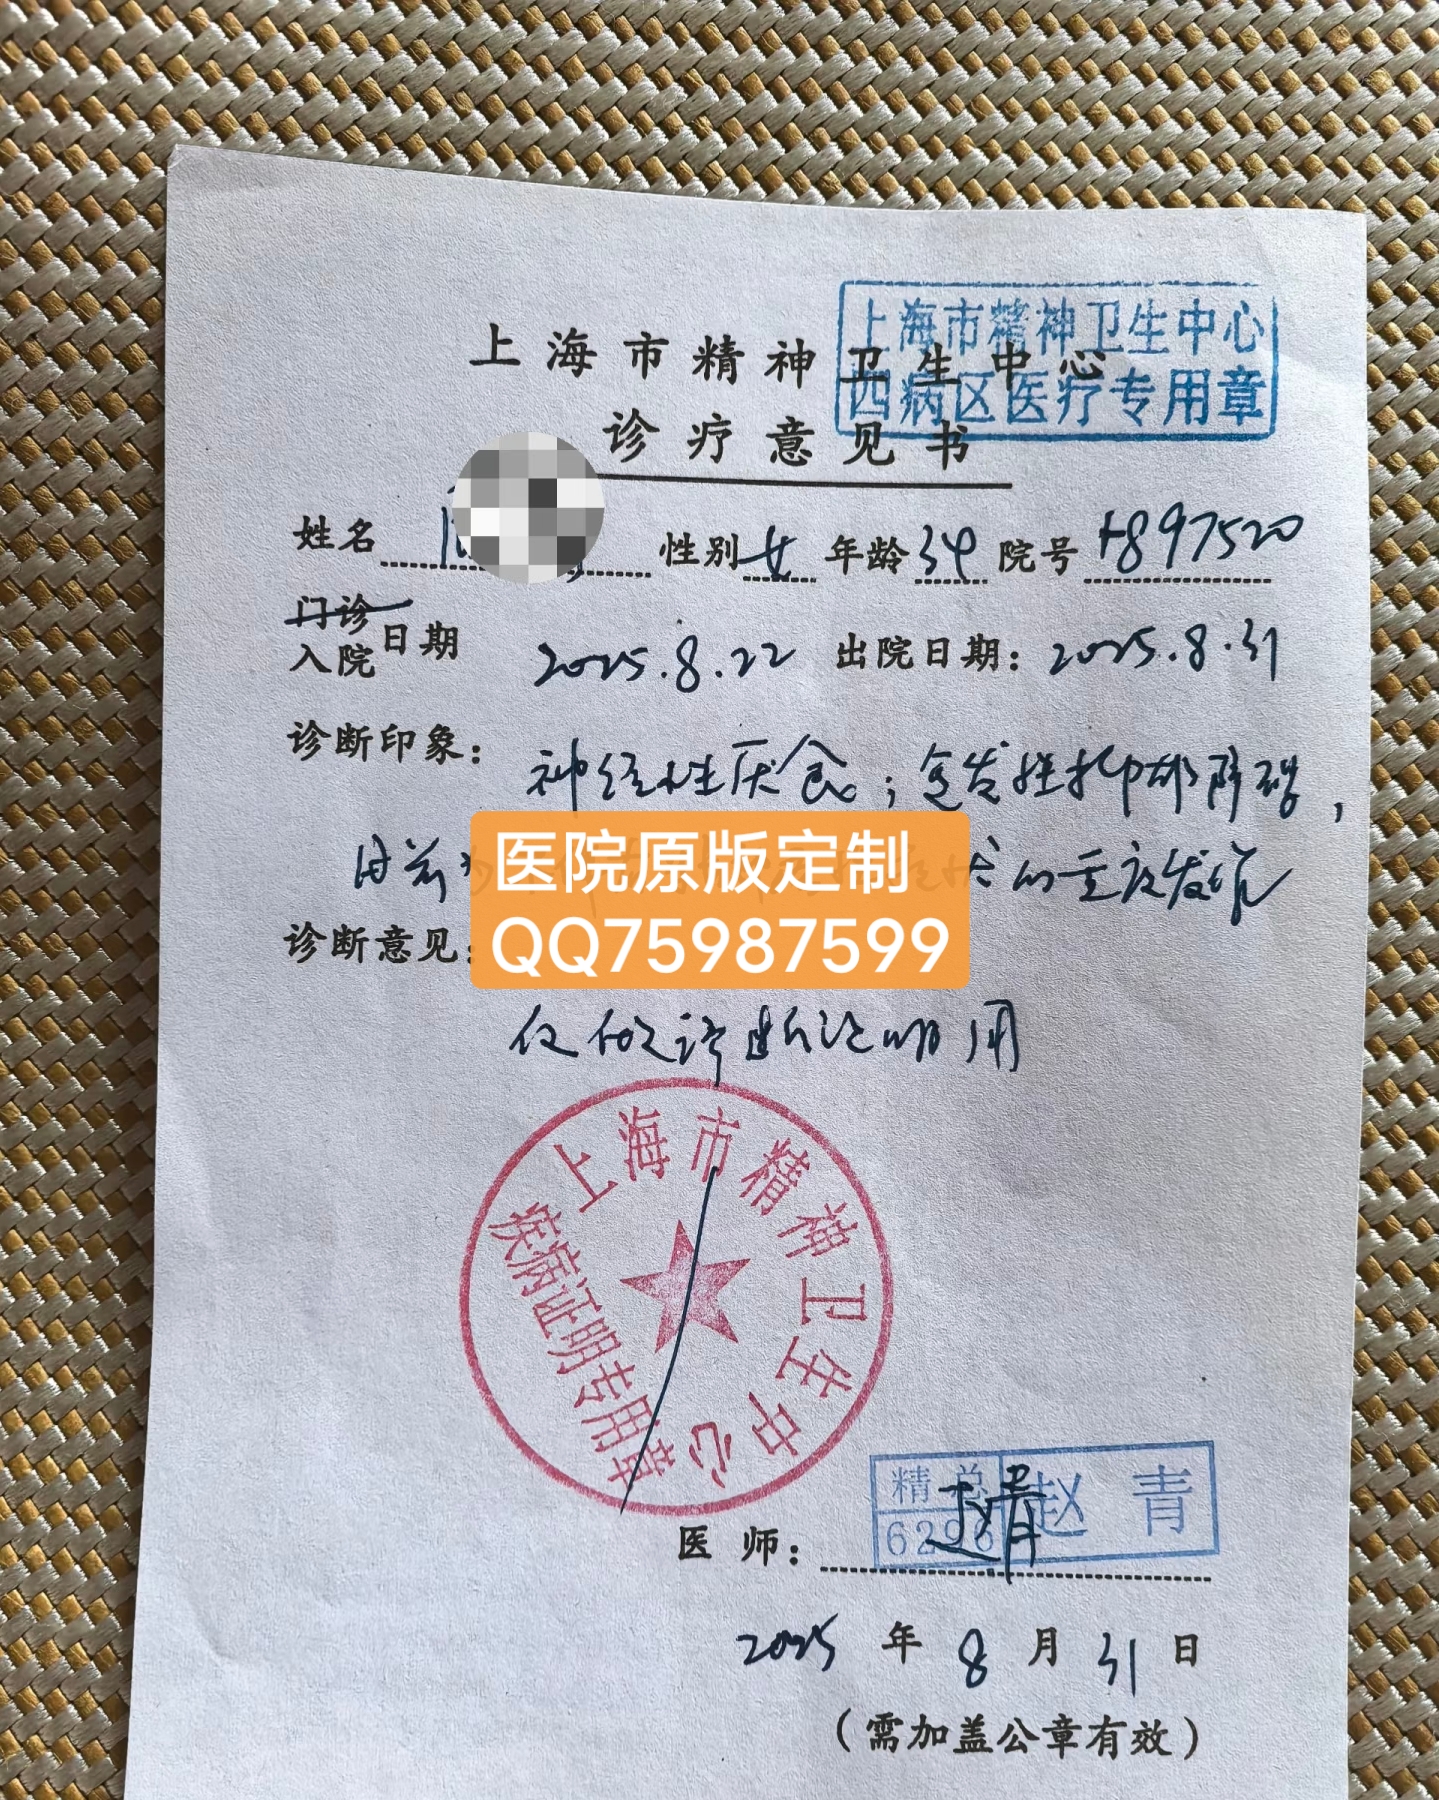 上海市精神卫生中心
西病区医疗专用章
上海市精神卫生中心
诊疗意见书
姓名 性别 女 年龄 34 院号 +897520
门诊
入院日期 2025.8.22 出院日期：2025.8.31
诊断印象：
神经性厌食；复发性抑郁障碍，
目前为 的重度发作
医院原版定制
QQ75987599
诊断意见：
仅做诊断证明用
上海市精神卫生中心
疾病证明专用章
精总 赵青
6296
医师：赵青
2025年8月31日
（需加盖公章有效）